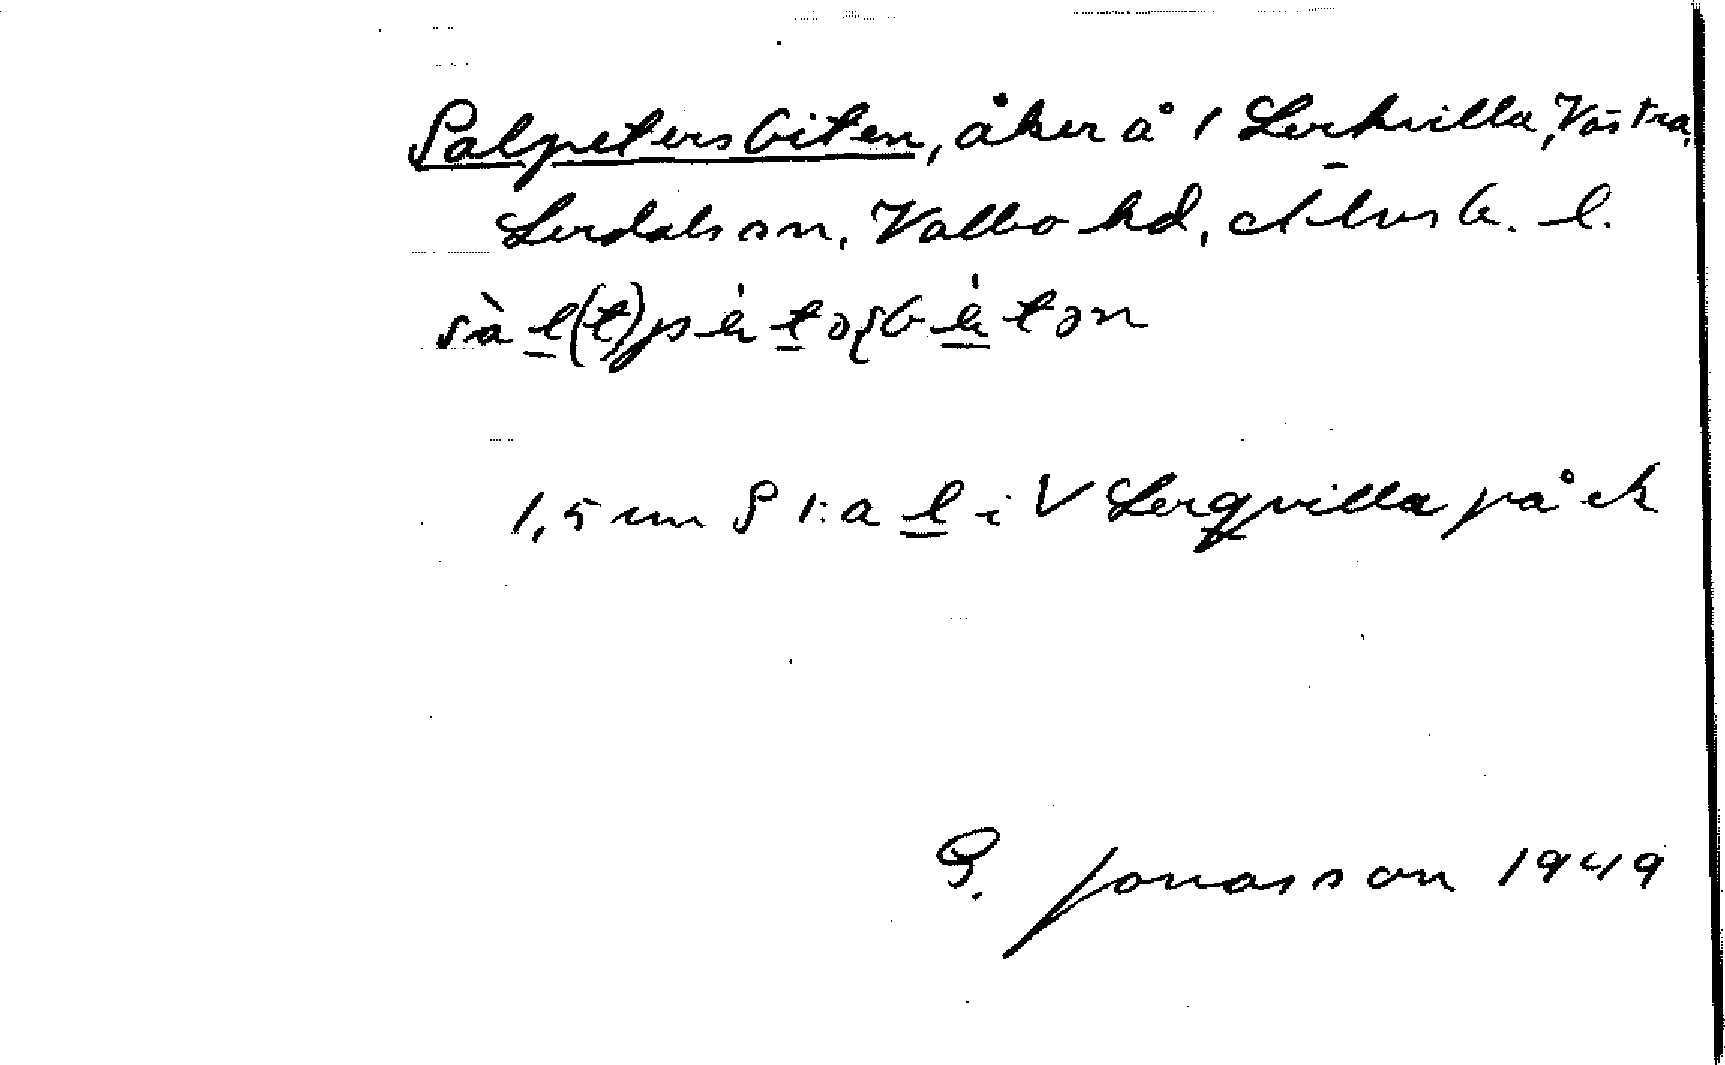 Salpetersbiten, åker å 1 Lerkvilla, Västra,
Lerdals sn, Valbo hd, Älvsb. l.
sàl(t)pètəṣbètən
1,5 cm S 1:a l i V Lerqvilla på ek
G. Jonasson 1949